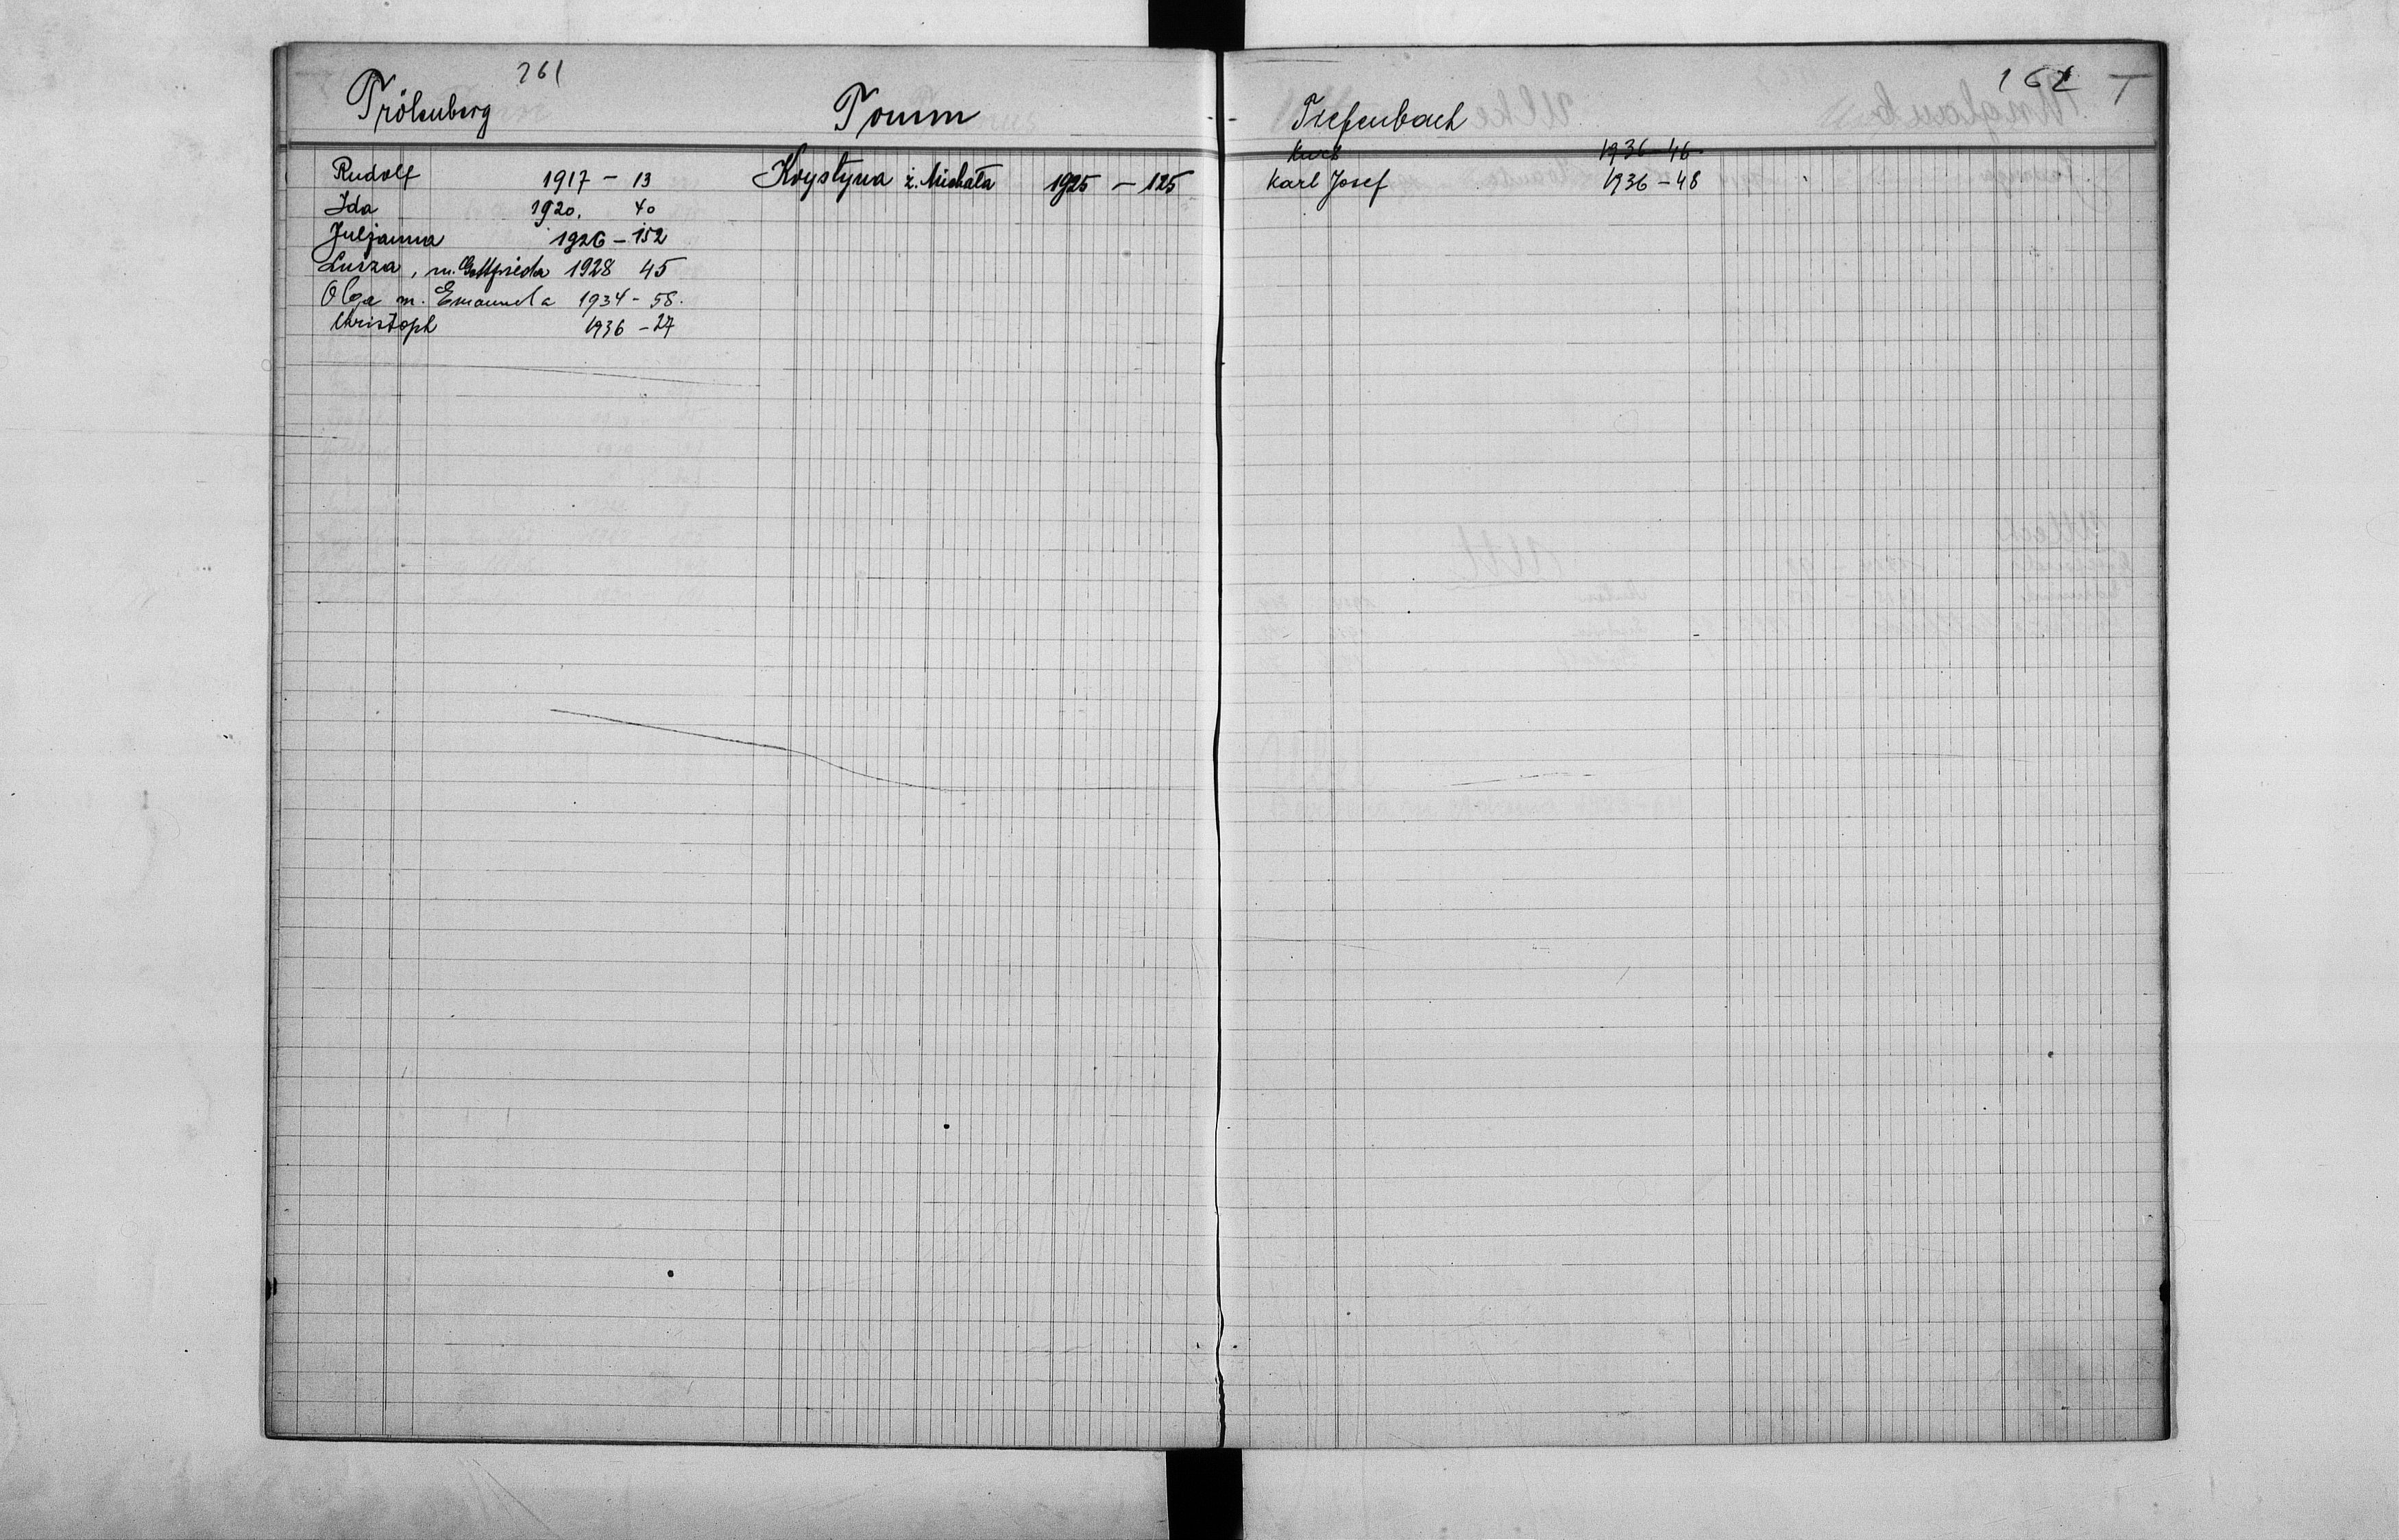 161
Trölenberg
Rudolf 1917 - 13
Ida 1920. 40
Juljanna 1926 - 152
Luiza, m. Gottfrieda 1928 45
Olga m. Emanuela 1934 - 58.
Christoph 1936 - 27
Tomm
Krystyna ż. Michała 1925 - 125
162 T
Tiefenbach
Kurt 1936 - 46
Karl Josef 1936 - 48